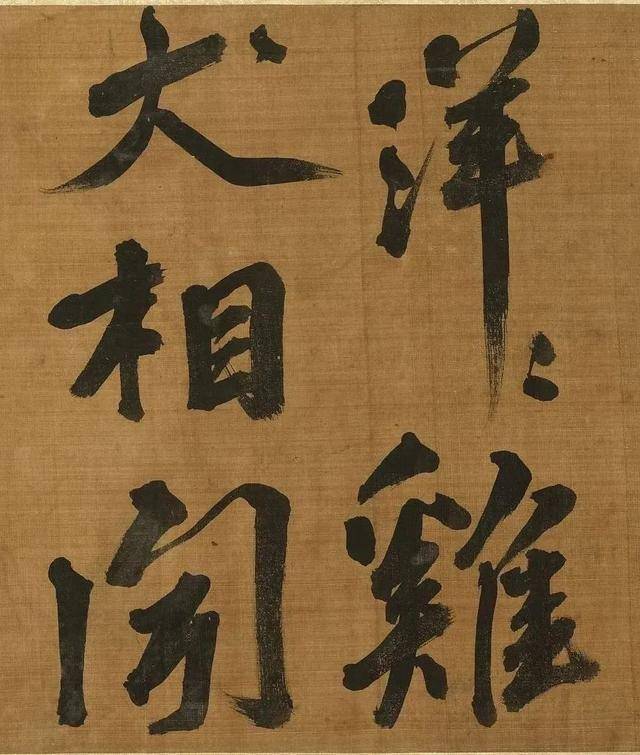 洋〻雞
犬相聞